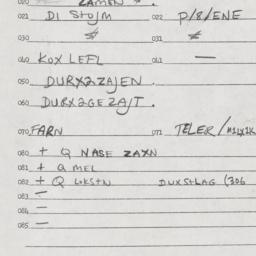 020 ZAMEN
021 DI STUJM 022 P/8/ENE
030 * 031 *
040 KOX LEFL 041 —
050 DURX2ZAJEN.
060 DURX2GEZAJT.
070 FARN 071 TELER/
080 + Q NASE ZAXN
081 + Q MEL
082 + Q LOKSTN DUXSTLAG (306
083 —
084 —
085 —